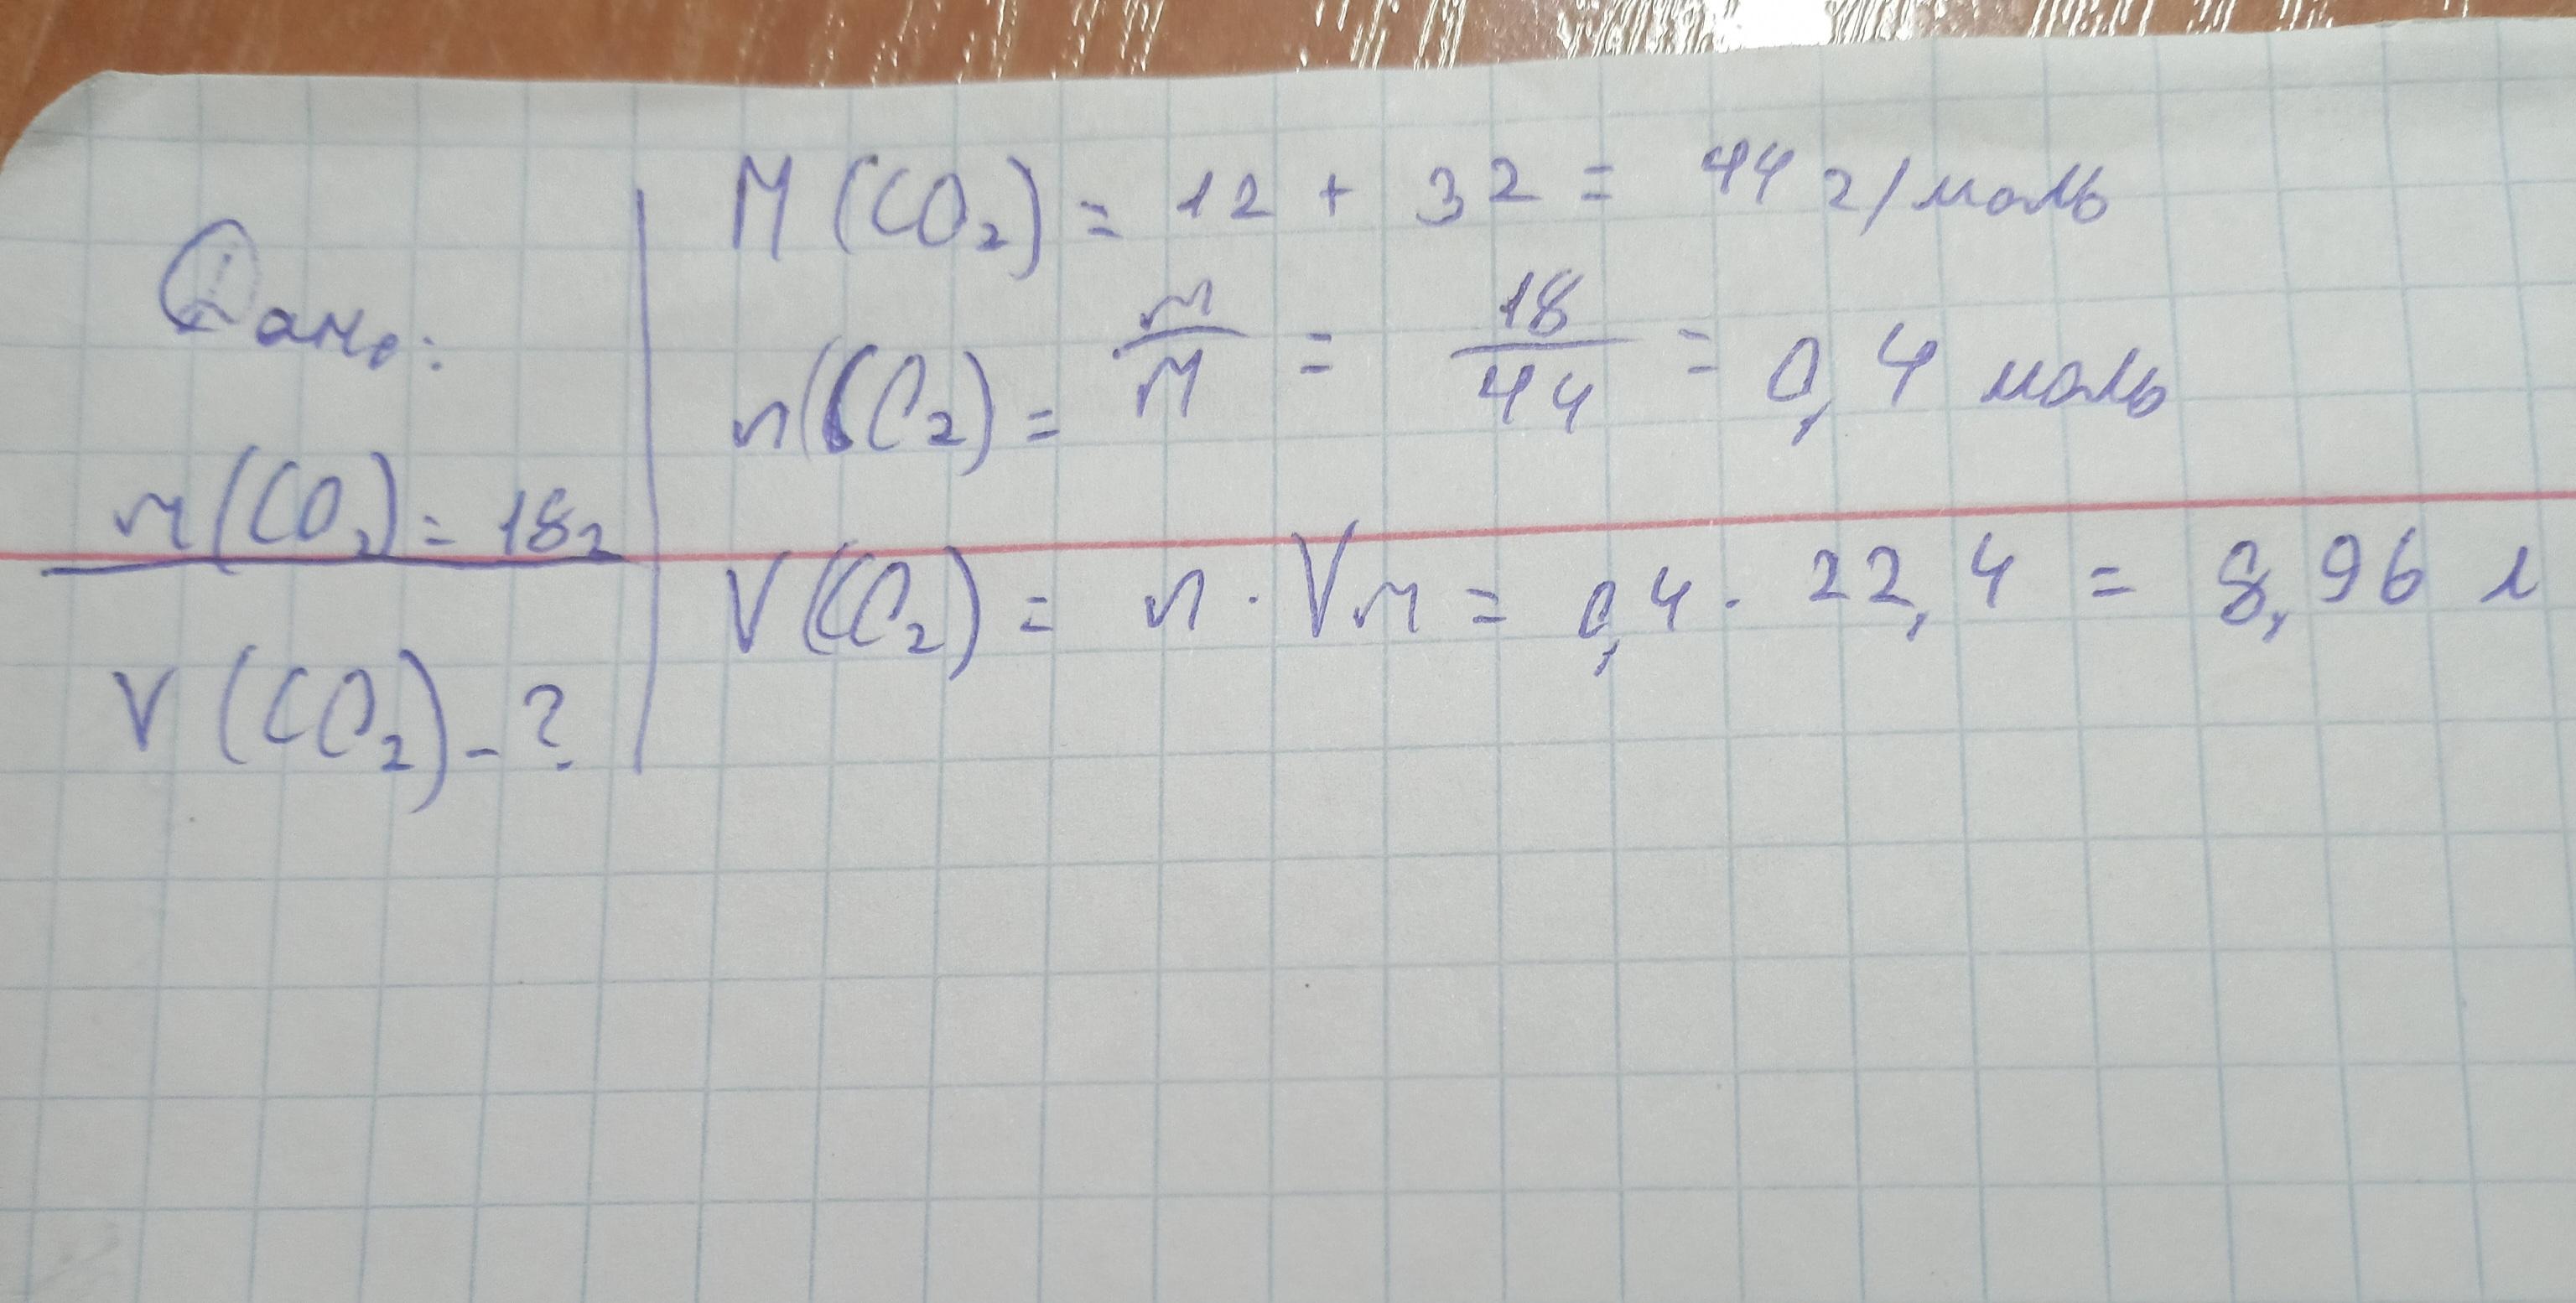 Дано:
m(CO₂) = 18г
V(CO₂) - ?
M(CO₂) = 12 + 32 = 44 г/моль
n(CO₂) = m/M = 18/44 = 0,4 моль
V(CO₂) = n · Vm = 0,4 · 22,4 = 8,96 л